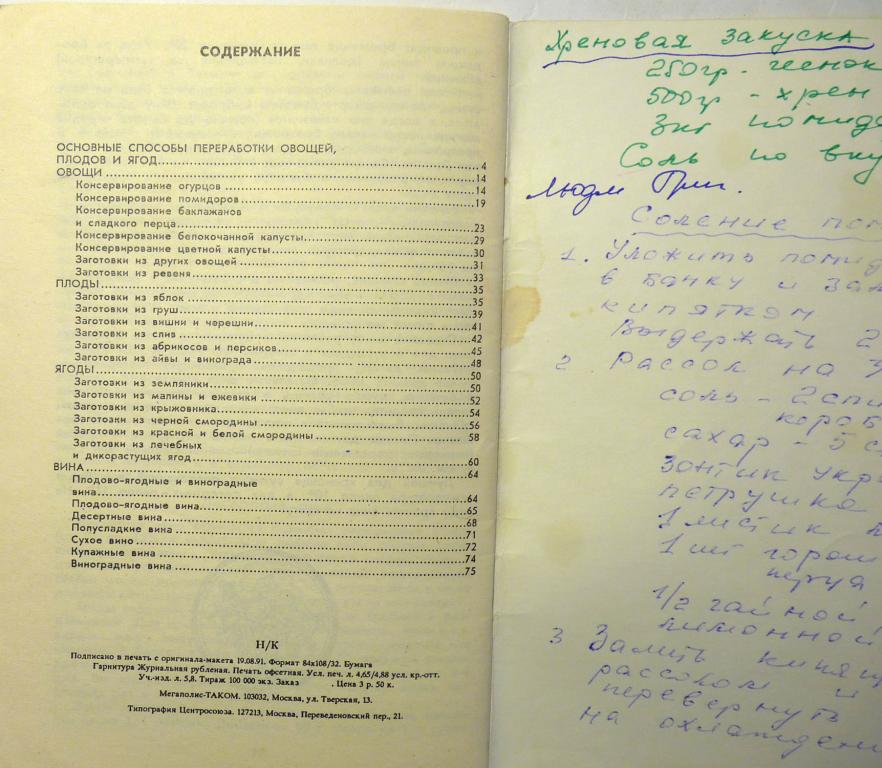 СОДЕРЖАНИЕ
ОСНОВНЫЕ СПОСОБЫ ПЕРЕРАБОТКИ ОВОЩЕЙ,
ПЛОДОВ И ЯГОД 4
ОВОЩИ 14
Консервирование огурцов 14
Консервирование помидоров 19
Консервирование баклажанов
и сладкого перца 23
Консервирование белокочанной капусты 29
Консервирование цветной капусты 30
Заготовки из других овощей 31
Заготовки из ревеня 33
ПЛОДЫ 35
Заготовки из яблок 35
Заготовки из груш 39
Заготовки из вишни и черешни 41
Заготовки из слив 42
Заготовки из абрикосов и персиков 45
Заготовки из айвы и винограда 48
ЯГОДЫ 50
Заготовки из земляники 50
Заготовки из малины и ежевики 52
Заготовки из крыжовника 54
Заготовки из черной смородины 56
Заготовки из красной и белой смородины 58
Заготовки из лечебных
и дикорастущих ягод 60
ВИНА 64
Плодово-ягодные и виноградные
вина 64
Плодово-ягодные вина 65
Десертные вина 68
Полусладкие вина 71
Сухое вино 72
Купажные вина 74
Виноградные вина 75
Н/К
Подписано в печать с оригинала-макета 19.08.91. Формат 84х108/32. Бумага
Гарнитура Журнальная рубленая. Печать офсетная. Усл. печ. л. 4,65/4,88 усл. кр.-отт.
Уч.-изд. л. 5,8. Тираж 100 000 экз. Заказ . Цена 3 р. 50 к.
Мегаполис-ТАКОМ. 103032, Москва, ул. Тверская, 13.
Типография Центросоюза. 127213, Москва, Переведеновский пер., 21.
Хреновая закуска
250гр. чеснок
500гр - хрен
3кг помид
Соль по вку
Людм Григ.
Соление пом
1. Уложить помид
в банку и зал
кипятком
Выдержать 2
2 Рассол на 3
соль - 2 спи
короб
сахар - 5 с
Зонтик укро
петрушка
1 листик
1 шт горош
перца
1/2 чайной
лимонной
3 Залить кипящ
рассолом и
перевернуть
на охлаждени